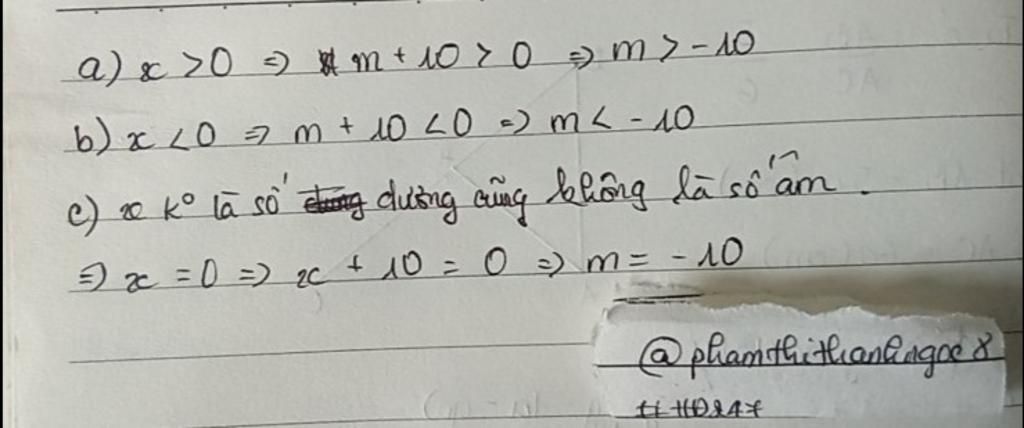 a) x > 0 => m + 10 > 0 => m > -10
b) x < 0 => m + 10 < 0 => m < -10
c) x k° là số dương cũng không là số âm.
=> x = 0 => x + 10 = 0 => m = -10
@phamthithanhngoc8